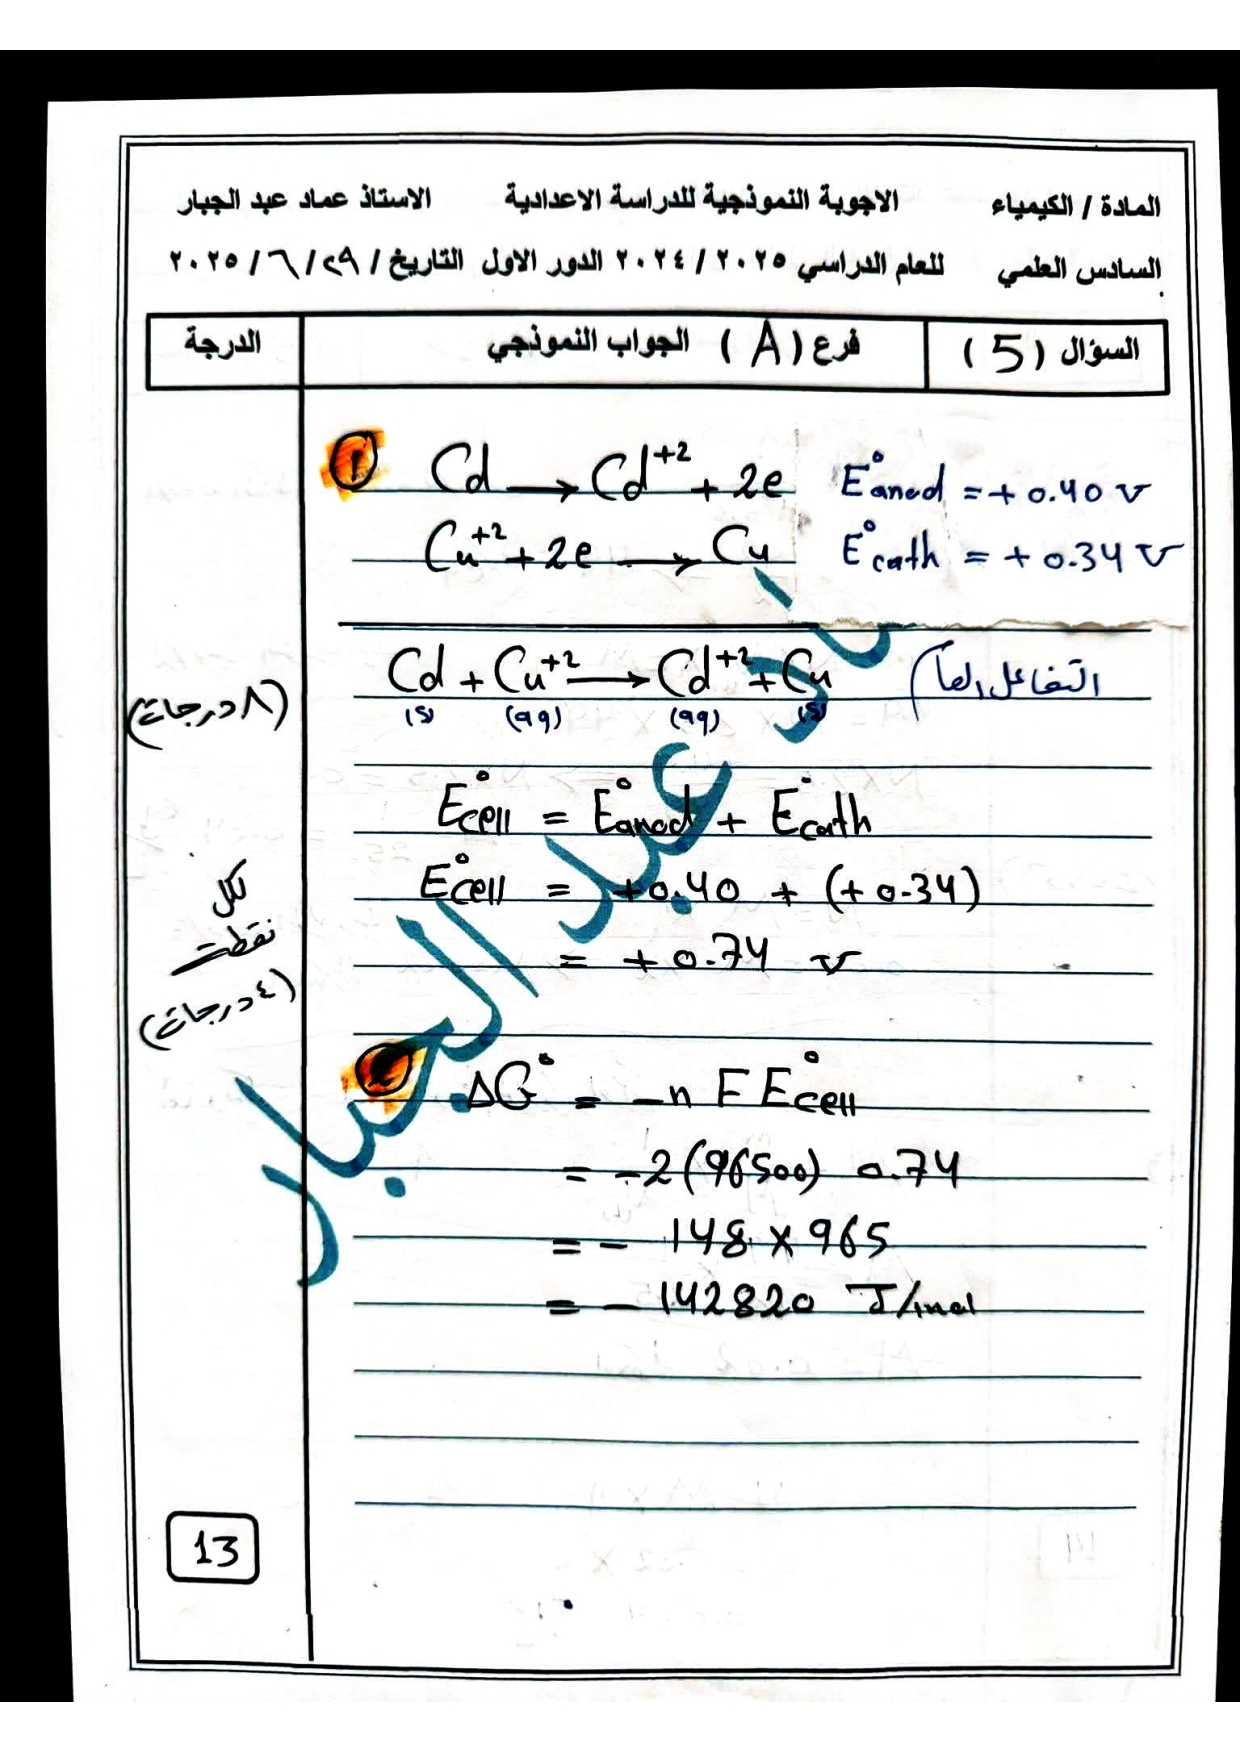 المادة / الكيمياء الاجوبة النموذجية للدراسة الاعدادية الاستاذ عماد عبد الجبار
السادس العلمي للعام الدراسي ٢٠٢٥ / ٢٠٢٤ الدور الاول التاريخ / ٢٩ / ٦ / ٢٠٢٥
السؤال ( 5 ) فرع ( A ) الجواب النموذجي الدرجة
① Cd → Cd⁺² + 2e E°anod = + 0.40 v
Cu⁺² + 2e → Cu E°cath = + 0.34 v
Cd(s) + Cu⁺²(aq) → Cd⁺²(aq) + Cu(s) التفاعل العام
(٨ درجات)
E°cell = E°anod + E°cath
E°cell = +0.40 + (+0.34)
= +0.74 v
لكل
نقطة
(٤ درجات)
② ΔG° = -n F E°cell
= -2(96500) 0.74
= - 148 × 965
= - 142820 J/mol
عماد عبد الجبار
13